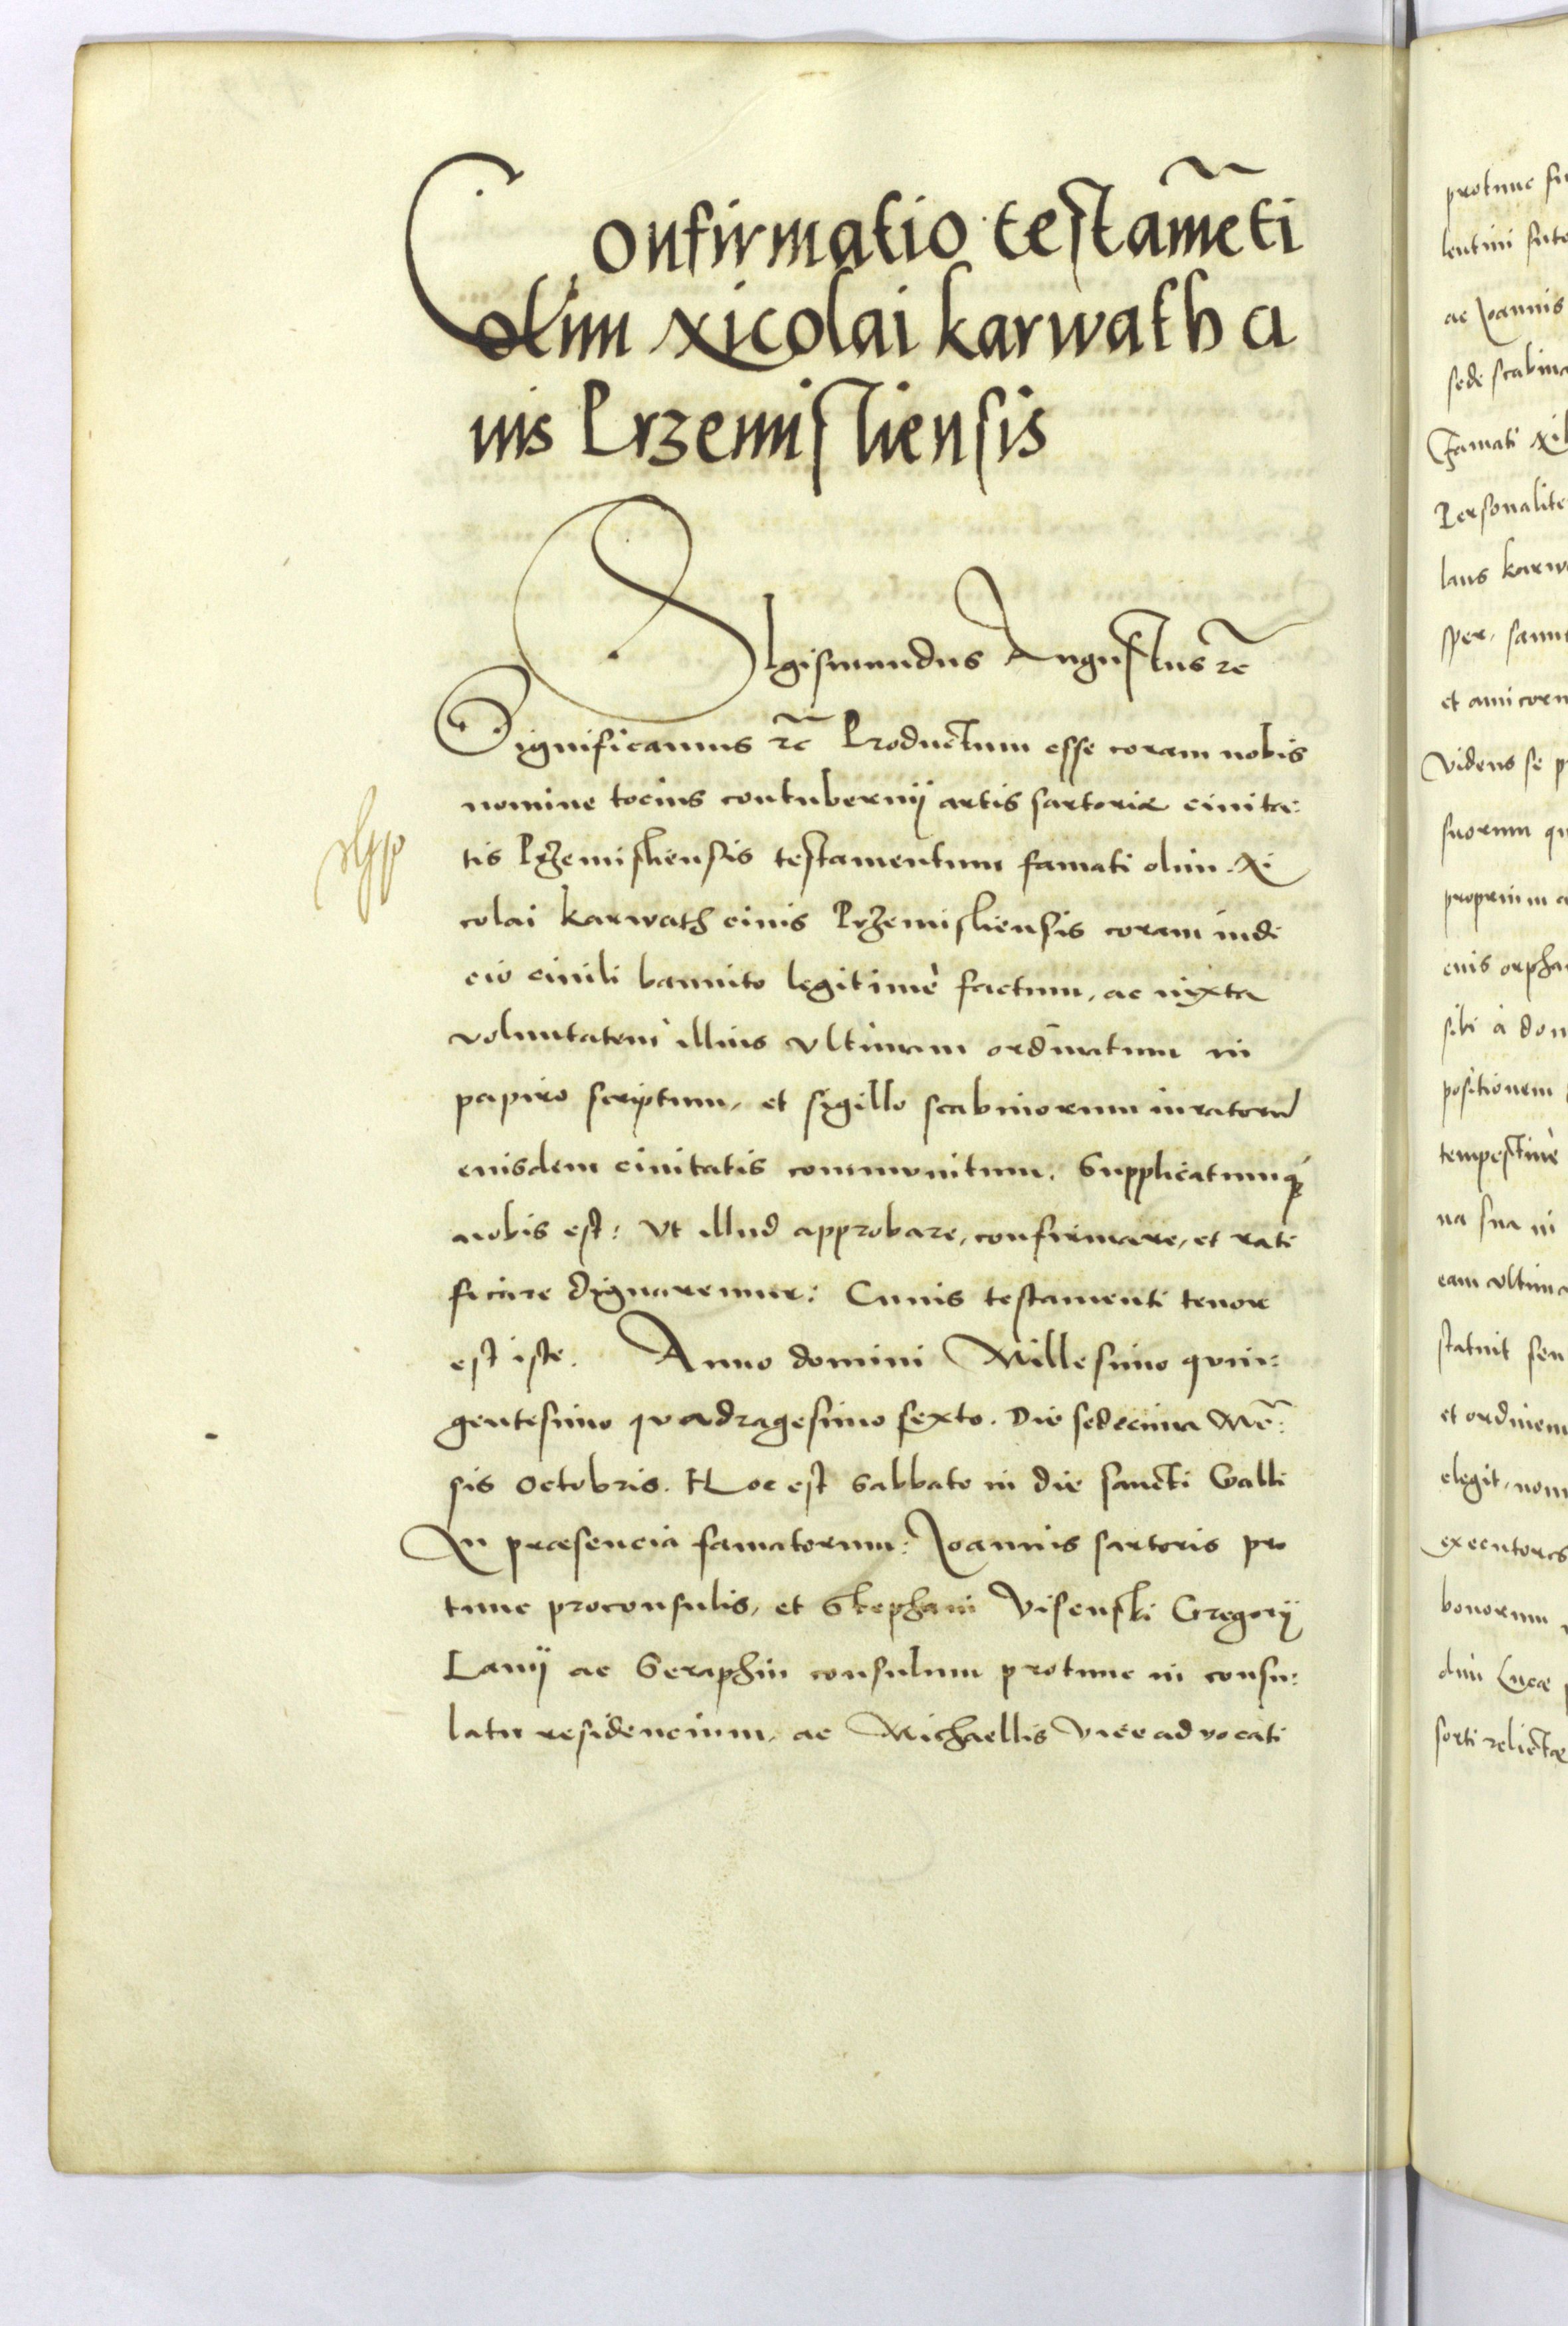 Confirmatio testam̃eti
olim Nicolai karwath ci
uis Przemisliensis
SIgismundus Augustus rc̃
Significamus rc̃ Productum esse coram nobis
nomine tocius contubernij artis sartoriæ ciuita:
tis Przemisliensis testamentum famati olim Ni
colai Karwath ciuis Przemisliensis coram iudi
cio ciuili bannito legitimè factum, ac iuxta
voluntatem illius vltimam ordinatum in
papiro scriptum, et sigillo scabinorum iuratorũ
eiusdem ciuitatis communitum. Supplicatumq́
nobis est: Vt illud approbare, confirmare, et rati
ficare dignaremur: Cuius testamenti tenor
est iste. Anno domini Millesimo quin:
gentesimo quadragesimo sexto. Die sedecima Mẽ:
sis Octobris. Hoc est Sabbato in die sancti Galli
In præsencia famatorum: Joannis sartoris pro
tunc proconsulis, et Stephani Visenski Gregorij
Lanij ac Seraphin consulum protunc in consu:
latu residencium, ac Michaellis viceadvocati
protunc
ac Joannis
Famati
et amicoru
videns se
suorum
proprium
sibi à
positionem
tempestiuè
na sua in
eam vltima
statuit seu
elegit, nom
executores
bonorum
sorti relictæ